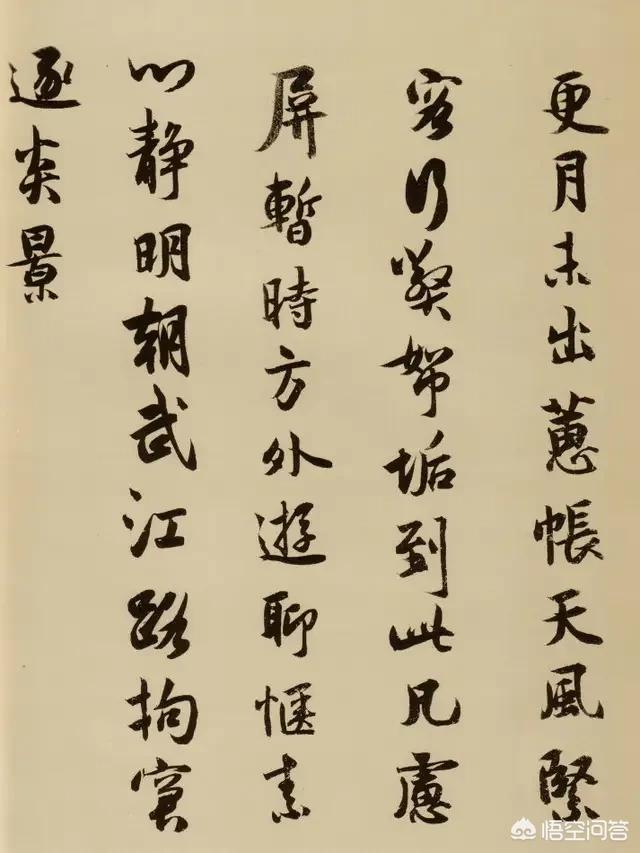 更月未出蕙帳天風緊
客行帤垢到此凡慮
屏暫時方外遊聊愜素
心静明朝武江路拘窘
逐炎景
悟空问答